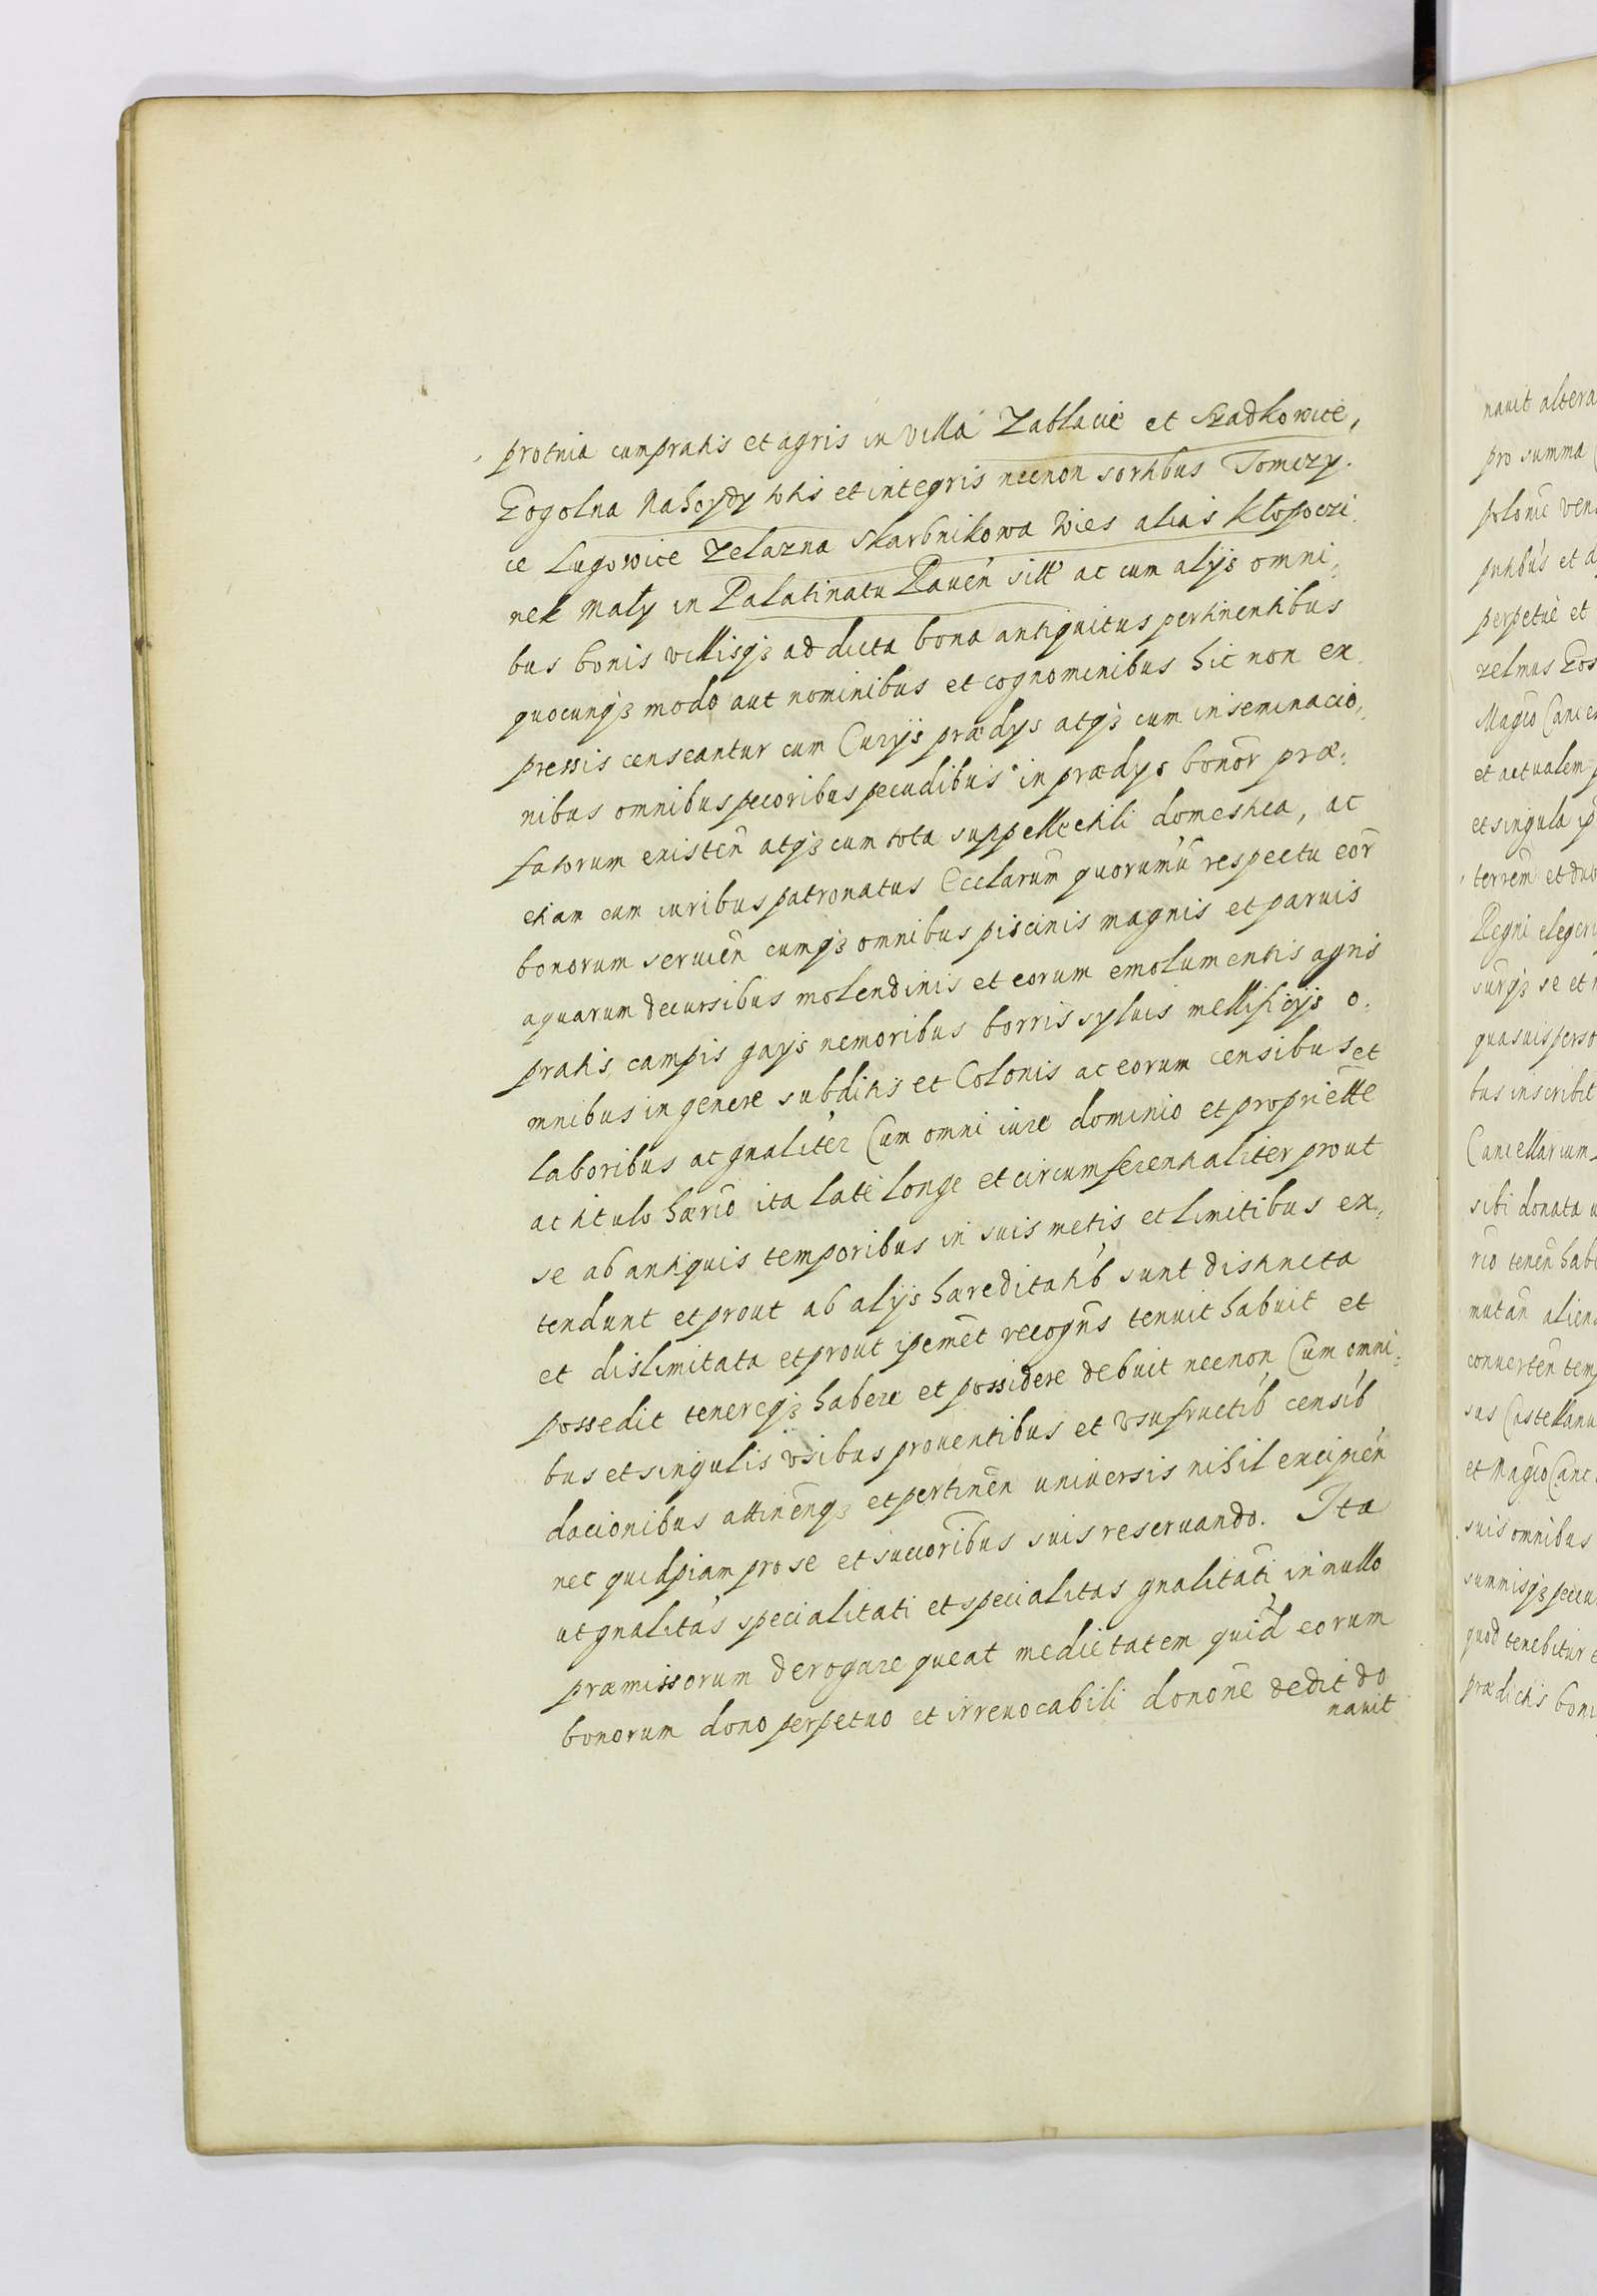 protnia cum pratis et agris in villa Zablacie et Szadkowice,
Gogolna Nahoydy totis et integris necnon sortibus Tomczy
ce Lugowice Zelazna Skarbnikowa Wies alias Kłopoczi
nek Mały in Palatinatu Raven̄ sitt ac cum alijs omni,
bus bonis villisqz ad dicta bona antiquitus pertinentibus
quocunqz modo aut nominibus et cognominibus hic non ex
pressis censeantur cum Curijs prædys atqz cum inseminacio,
nibus omnibus pecoribus pecudibus in prædys bonor̄ præ,
fatorum existen̄ atqz cum tota suppellectili domestica, ac
etiam cum iuribus patronatus Ecclarum̄ quorumū respectu eor̄
bonorum servien̄ cumqz omnibus piscinis magnis et parvis
aquarum decursibus molendinis et eorum emolumentis agris
pratis campis gays nemoribus borris syluis mellificijs o,
mnibus in genere subditis et Colonis ac eorum censibus et
laboribus ac gnaliter Cum omni iure dominio et propriette
ac titulo hærio ita late longe et circumferentialiter prout
se ab antiquis temporibus in suis metis et limitibus ex,
tendunt et prout ab alijs hæreditatib sunt distincta
et dislimitata et prout ipemet recogns tenuit habuit et
possedit tenereqz habere et possidere debuit necnon Cum omni,
bus et singulis vsibus proventibus et vsufructib censib
dacionibus attinenqz et pertinen̄ universis nihil excipien̄
nec quidpiam pro se et succoribus suis reservando. Ita
ut gnalitas specialitati et specialitas gnalitati in nullo
præmissorum derogare queat medietatem quid eorum
bonorum dono perpetuo et irrevocabili donone dedit do
navit
navit altera
pro summa
polonic
et a
perpetue et
zelmus
Magco Cance
et actualem
et singula
terrem et
Regni eleger
surqz se et
quasuis perso
bus inscribit
Cancellarium
sibi donata
rio tenen habe
mutan aliena
converten temp
sus Castellanu
et Magco Canc
suis omnibus
summisqz pecu
quod tenebitur
prædictis boni